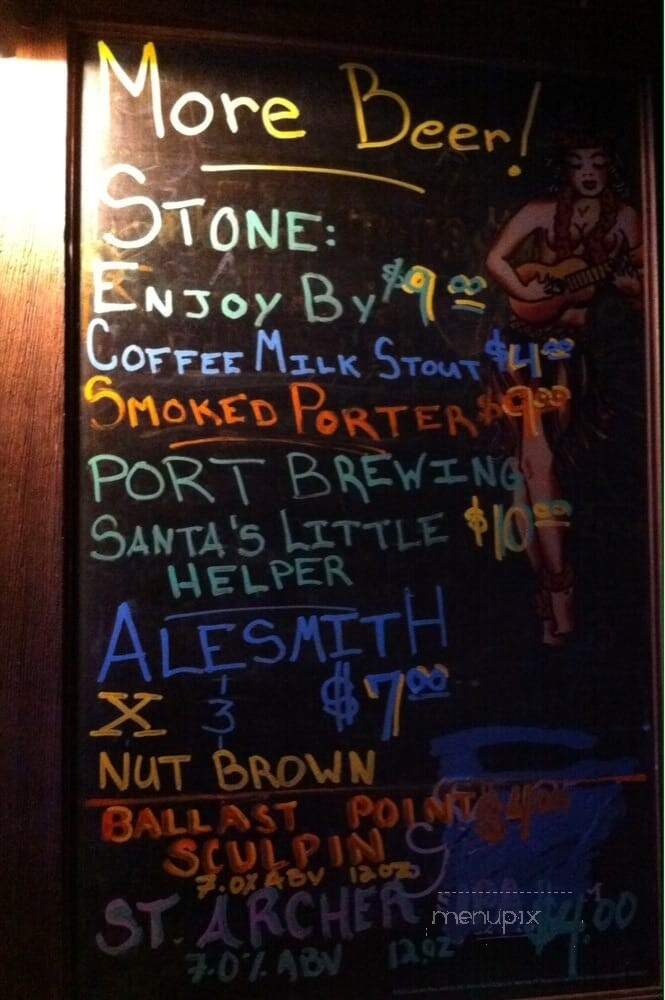 More Beer!
STONE:
ENJOY BY $9.00
COFFEE MILK STOUT $4.00
SMOKED PORTER $9.00
PORT BREWING
SANTA'S LITTLE $10.00
HELPER
ALESMITH
X & $7.00
NUT BROWN
BALLAST POINT $4.00
SCULPIN
7.0% ABV 12OZ
ST. ARCHER $4.00
7.0% ABV 12OZ
menupix